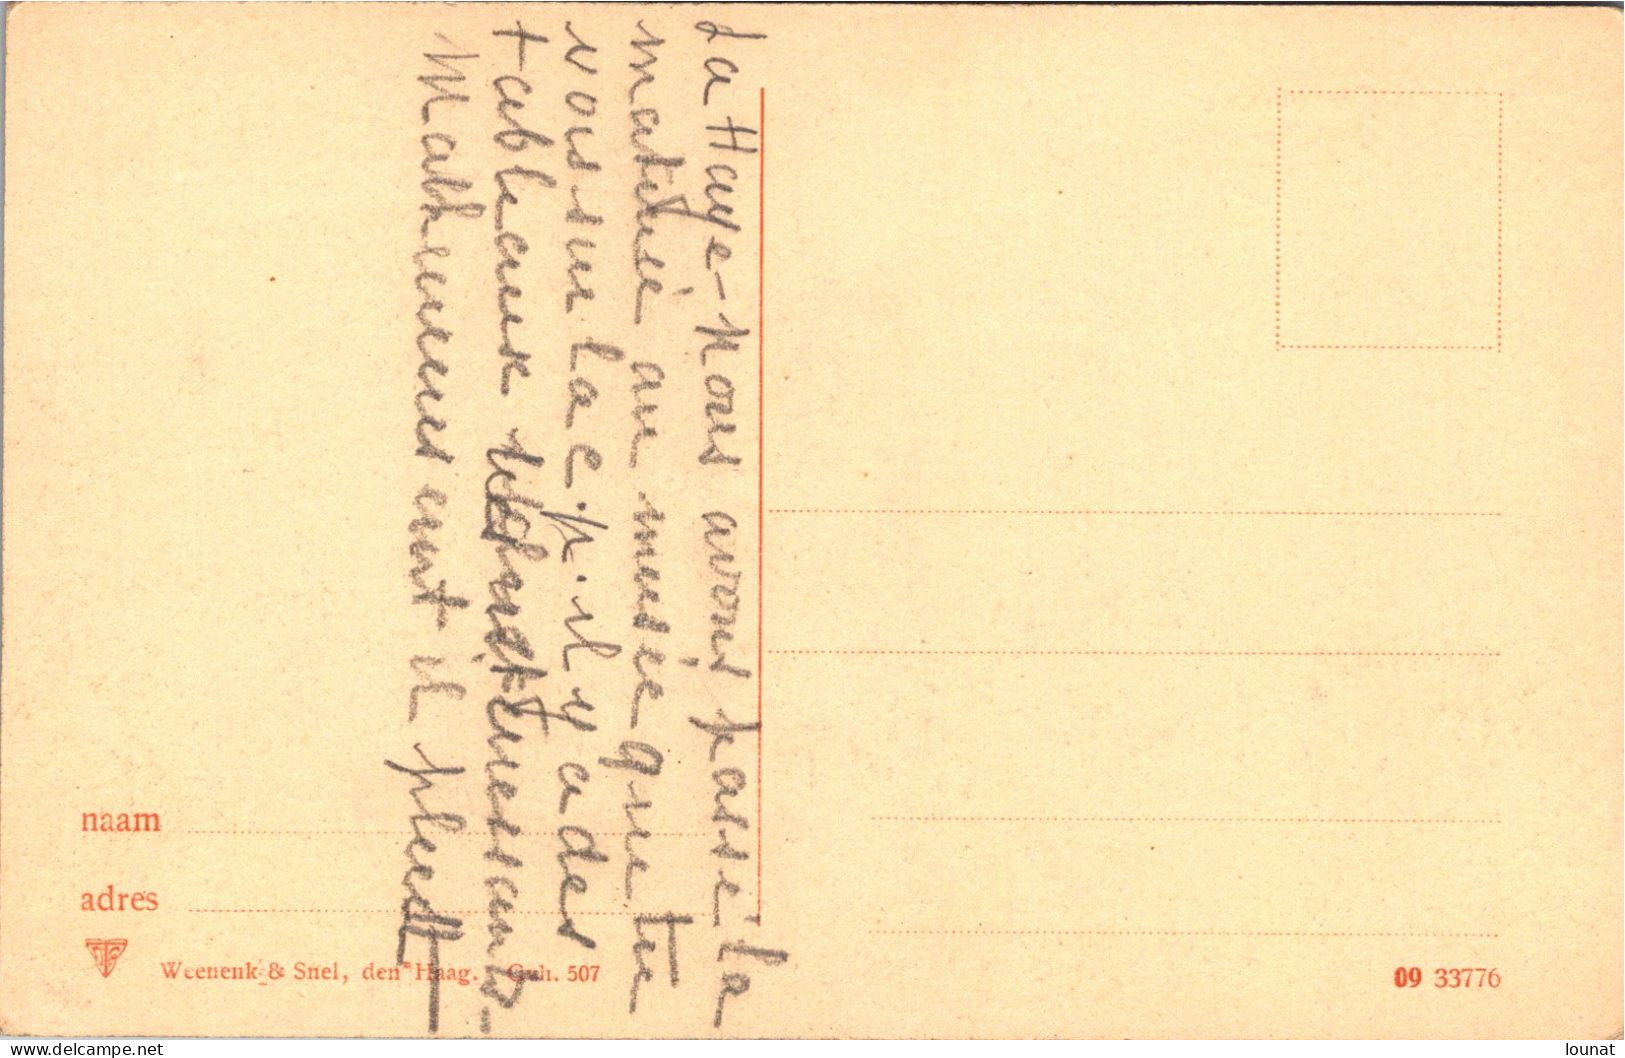 La Haye - Nous avons passé la
matinée au musée que tu
vois sur la c.p. il y a des
tableaux intéressants.
Malheureusement il pleut
naam
adres
Weenenk & Snel, den Haag. Guh. 507
09 33776
www.delcampe.net
lounat